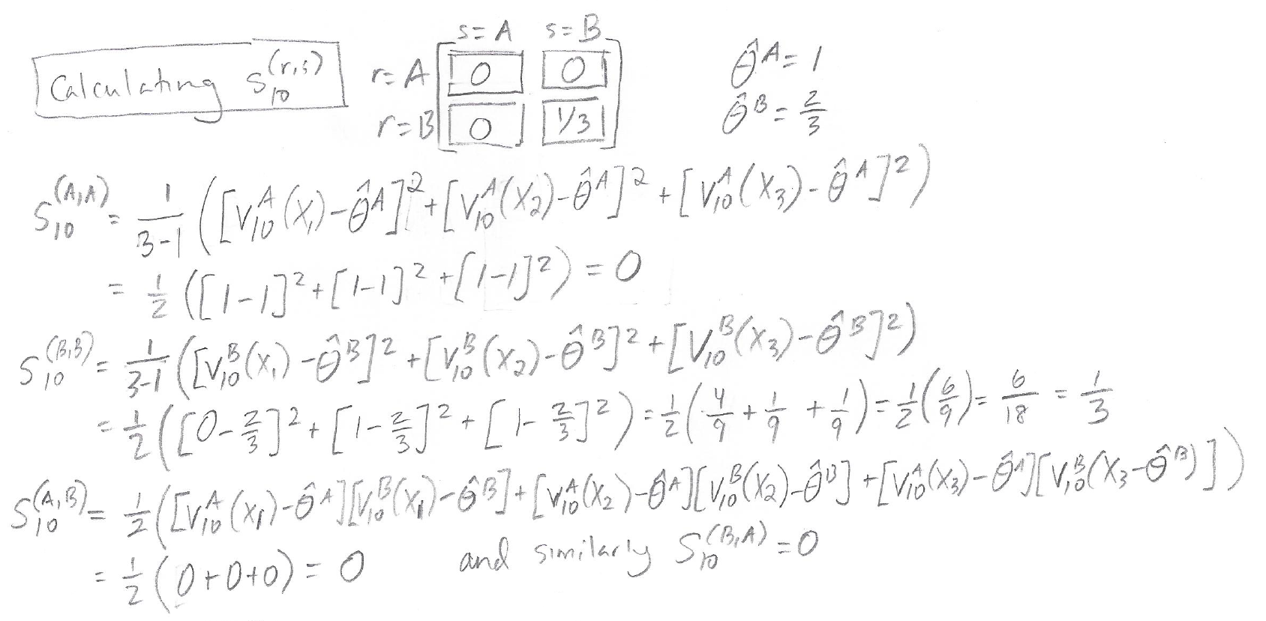 s=A s=B
Calculating S₁₀^(r,s) r=A [ 0 0 θ̂^A = 1
r=B 0 1/3 ] θ̂^B = 2/3
S₁₀^(A,A) = 1/(3-1) ([V₁₀^A(X₁)-θ̂^A]² + [V₁₀^A(X₂)-θ̂^A]² + [V₁₀^A(X₃)-θ̂^A]²)
= 1/2 ([1-1]² + [1-1]² + [1-1]²) = 0
S₁₀^(B,B) = 1/(3-1) ([V₁₀^B(X₁)-θ̂^B]² + [V₁₀^B(X₂)-θ̂^B]² + [V₁₀^B(X₃)-θ̂^B]²)
= 1/2 ([0-2/3]² + [1-2/3]² + [1-2/3]²) = 1/2 (4/9 + 1/9 + 1/9) = 1/2 (6/9) = 6/18 = 1/3
S₁₀^(A,B) = 1/2 ([V₁₀^A(X₁)-θ̂^A][V₁₀^B(X₁)-θ̂^B] + [V₁₀^A(X₂)-θ̂^A][V₁₀^B(X₂)-θ̂^B] + [V₁₀^A(X₃)-θ̂^A][V₁₀^B(X₃-θ̂^B)])
= 1/2 (0+0+0) = 0 and similarly S₁₀^(B,A) = 0